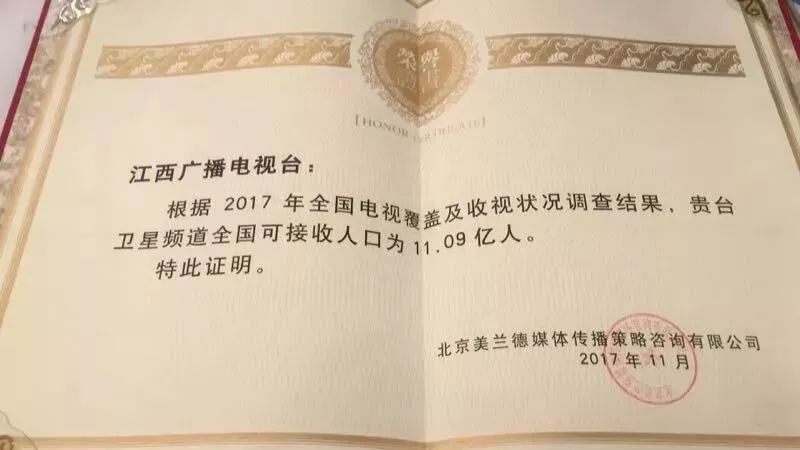 榮譽
证书
[HONOR CERTIFICATE]
江西广播电视台：
根据 2017 年全国电视覆盖及收视状况调查结果，贵台
卫星频道全国可接收人口为 11.09 亿人。
特此证明。
北京美兰德媒体传播策略咨询有限公司
2017 年 11 月